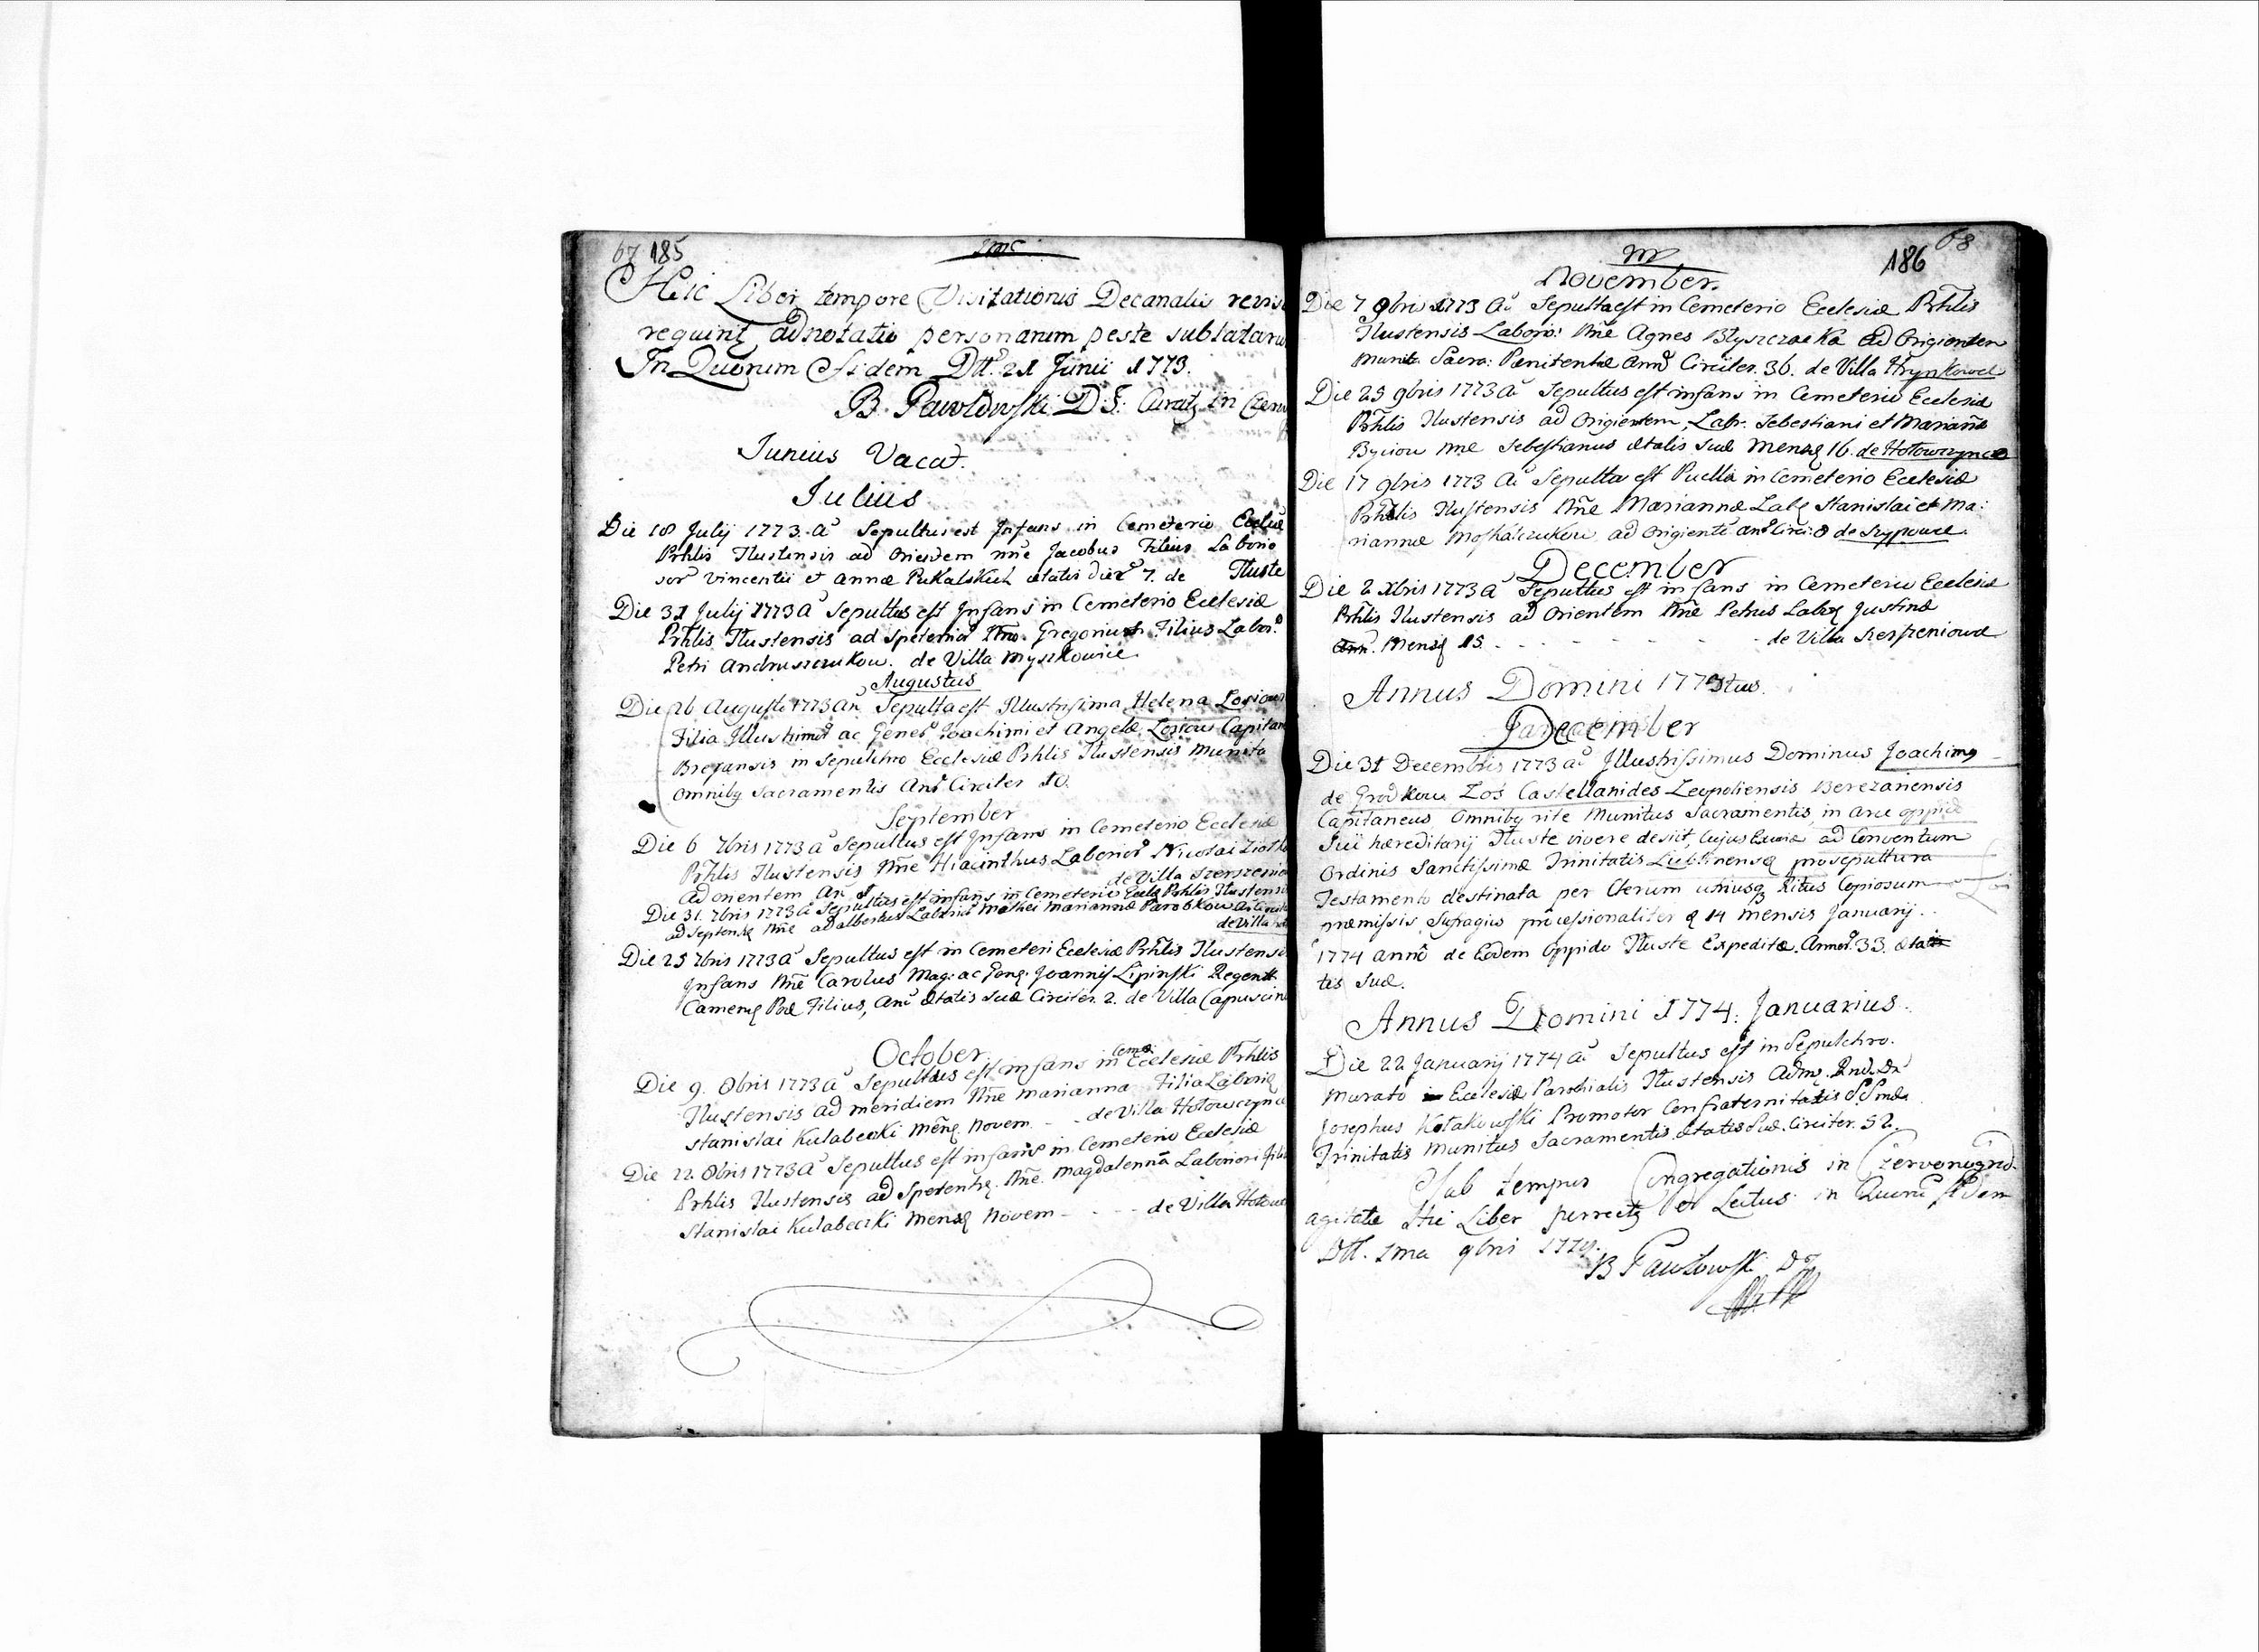 67 185
Hic Liber tempore Visitationis Decanalis revis
requirit adnotatio personarum peste sublataru
In Quorum Fidem Dtt. 21 Junii 1773.
B. Pawłowski D. F. Curat in Czerw
Junius Vacat.
Julius
Die 18 July 1773. a Sepultus est Infans in Cemeterio Eccliæ
Prhlis Tlustensis ad Oriendem nne Jacobus Filius Laborio
sor Vincentii et Annæ Pukalskich ætatis dier 7. de Tluste
Die 31 July 1773 a Sepultus est Infans in Cemeterio Ecclesiæ
Prhlis Tlustensis ad Septemtr Nne Gregorius Filius Labor.
Petri Andruszczukow. de Villa Myszkowice
Augustus
Die 26 Augusti 1773 an Sepulta est Illustrissima Helena Łosiow
Filia Illustrimor ac Gener Joachimi et Angelæ Łosiow Capitan
Brezansis in Sepulchro Ecclesiæ Prhlis Tlustensis munita
Omnibq Sacramentis An Circiter 10.
September
Die 6 7bris 1773 a Sepultus est Infans in Cemeterio Ecclesiæ
Prhlis Tlustensis Nne Hiacinthus Laborior Nicolai
de Villa Szerszenio
ad orientem An 1
Die 31. 7bris 1773 a Sepultus est infans in Cemeterio Eccle Prhlis Tlustensi
ad Septentr Nne Adalbertus Laborior Mathei Mariannæ Parobkow
de Villa
Die 25 7bris 1773 a Sepultus est in Cemeteri Ecclesiæ Prhlis Tlustensi
Infans Nne Carolus Mag: ac Gene: Joannis Lipinski Regent
Camene Pod Filius, Ani ætatis suæ Circiter 2. de Villa Capuscin
October
Die 9. 8bris 1773 a Sepultus est infans in Ceme Ecclesiæ Prhlis
Tlustensis ad meridiem Nne Marianna Filia Laborio
Stanislai Kulabecki Mens. Novem - - de Villa Hołowczynce
Die 22. 8bris 1773 a Sepultus est infans in Cemeterio Ecclesiæ
Prhlis Tlustensis ad Septentr. Nne. Magdalenna Laboriori filia
Stanislai Kulabeczki Mens Novem - - - - de Villa Hołow
186 68
November.
Die 7 9bris 1773 a Sepulta est in Cemeterio Ecclesiæ Prhlis
Tlustensis Laborio: Nne Agnes Błyszczacka ad Origientem
Munit. Sacra: Penitentiæ Anno Circiter. 36. de Villa Hrynkowce
Die 25 9bris 1773 a Sepultus est infans in Cemeterio Ecclesiæ
Prhlis Tlustensis ad Origientem, Labr. Sebestiani et Marianæ
Byciow nne Sebestianus ætatis suæ Mens 16. de Hołowczynce
Die 17 9bris 1773 a Sepulta est Puella in Cemeterio Ecclesiæ
Prhlis Tlustensis Nne Marianna Lab Stanislai et Ma:
riannæ Moskalczukow ad Origiente ano Circi: 8 de Szypowce.
December
Die 2 Xbris 1773 a Sepultus est infans in Cemeterio Ecclesiæ
Prhlis Tlustensis ad Orientem Nne Petrus Labor Justinæ
Ann. Mens 15. - - - - - - de Villa Szerszeniowce
Annus Domini 1773tius.
December
Die 31 Decembris 1773 a Illustrissimus Dominus Joachimq
de Grodkow Łoś Castellanides Leopoliensis Berezanensis
Capitaneus Omnibq rite Munitus Sacramentis, in arce oppidi
Sui hæreditarij Tluste vivere desiit, Cujus Exuviæ ad Conventum
Ordinis Sanctissimæ Trinitatis Lublinense pro sepultura
Testamento destinata per Clerum utriusq Ritus Copiosum
præmissis Sufragiis processionaliter 14 Mensis Januarij.
1774 anno de Eodem Oppido Tluste Expeditæ. Annor. 33. ætatis
tis suæ.
Annus Domini 1774. Januarius.
Die 22 Januarij 1774 a Sepultus est in Sepulchro
Murato Ecclesiæ Parochialis Tlustensis Adm. Rnd. Dn
Josephus Kołakowski Promotor Confraternitatis S.Smæ
Trinitatis Munitus Sacramentis ætatis suæ. Circiter. 52.
Sub tempus Congregationis in Czervonogrod
agitatæ Hic Liber et Lectus in Quoru Fidem
Dtt. 1ma 9bris 1774.
B Pawłowski D F